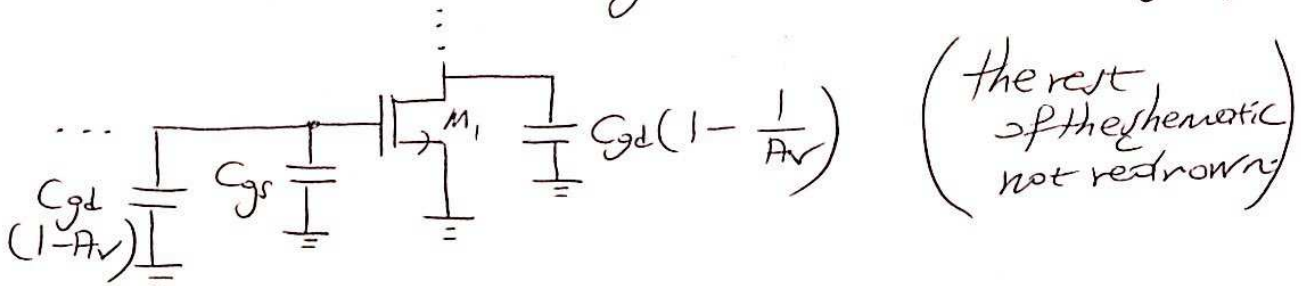 M₁
Cgd(1 - 1/Av)
Cgs
Cgd
(1-Av)
(the rest
of the shematic
not redrown)